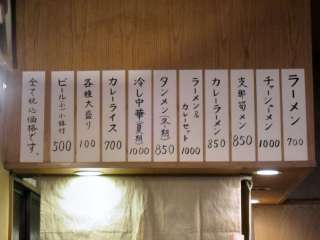 ラーメン 700
チャーシューメン 1000
支那筍メン 850
カレーラーメン 850
ラーメン&カレーセット 1000
タンメン(冬期) 850
冷し中華(夏期) 1000
カレーライス 700
各種大盛り 100
ビール(小)小鉢付 500
全て税込価格です。